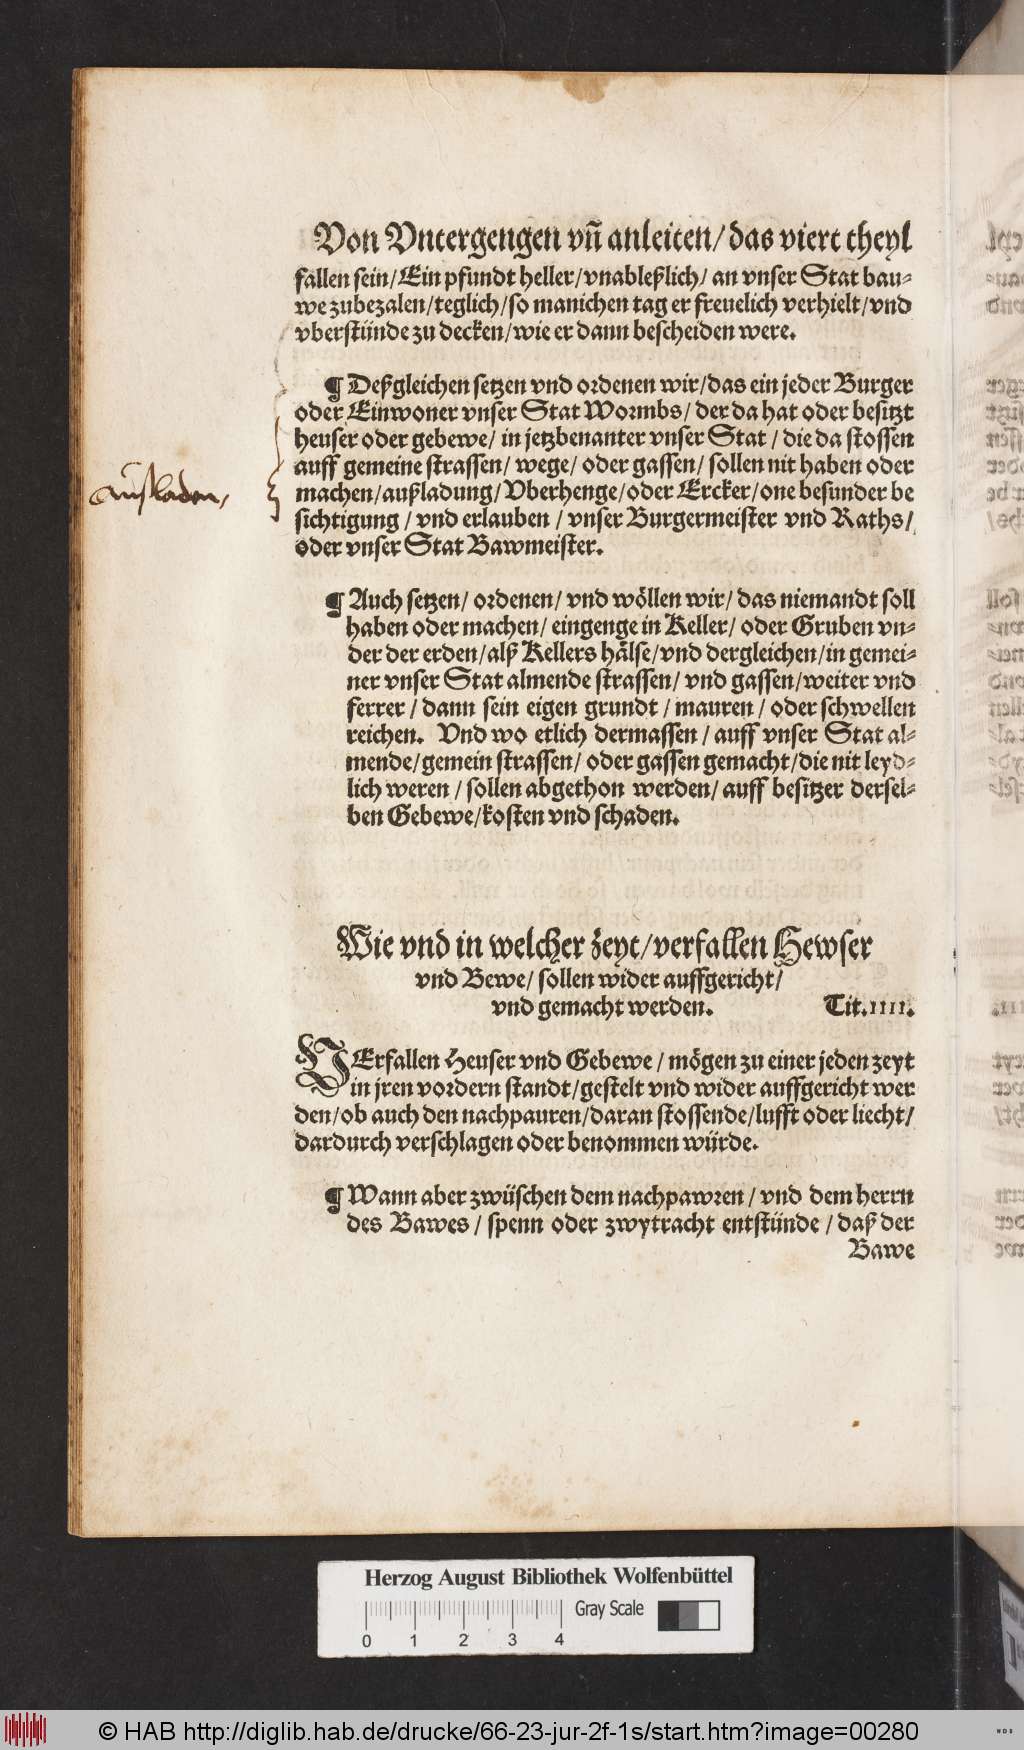 Von Vntergengen vñ anleiten/das viert theyl
fallen sein/Ein pfundt heller/vnableßlich/ an vnser Stat bau⸗
we zubezalen/teglich/so manichen tag er freuelich verhielt/vnd
vberstünde zu decken/wie er dann bescheiden were.
¶ Deßgleichen setzen vnd ordenen wir/das ein jeder Burger
oder Einwoner vnser Stat Wormbs/ der da hat oder besitzt
heuser oder gebewe/ in jetzbenanter vnser Stat / die da stossen
auff gemeine strassen/ wege/ oder gassen/ sollen nit haben oder
Außladen,
machen/außladung/Vberhenge/oder Ercker/one besunder be
sichtigung / vnd erlauben / vnser Burgermeister vnd Raths/
oder vnser Stat Bawmeister.
¶ Auch setzen/ ordenen/ vnd wöllen wir/ das niemandt soll
haben oder machen/ eingenge in Keller/ oder Gruben vn⸗
der der erden/alß Kellers hälse/vnd dergleichen/in gemei⸗
ner vnser Stat almende strassen/ vnd gassen/weiter vnd
ferrer / dann sein eigen grundt / mauren / oder schwellen
reichen. Vnd wo etlich dermassen / auff vnser Stat al⸗
mende/gemein strassen/ oder gassen gemacht/die nit leyd⸗
lich weren / sollen abgethon werden/ auff besitzer dersel⸗
ben Gebewe/kosten vnd schaden.
Wie vnd in welcher zeyt/verfallen Hewser
vnd Bewe/ sollen wider auffgericht/
vnd gemacht werden. Tit.IIII.
VErfallen Heuser vnd Gebewe / mögen zu einer jeden zeyt
in jren vordern standt/gestelt vnd wider auffgericht wer
den/ob auch den nachpauren/daran stossende/lufft oder liecht/
dardurch verschlagen oder benommen würde.
¶ Wann aber zwüschen dem nachpawren / vnd dem herrn
des Bawes / spenn oder zwytracht entstünde / daß der
Bawe
Herzog August Bibliothek Wolfenbüttel
Gray Scale
0 1 2 3 4
© HAB http://diglib.hab.de/drucke/66-23-jur-2f-1s/start.htm?image=00280
WDB